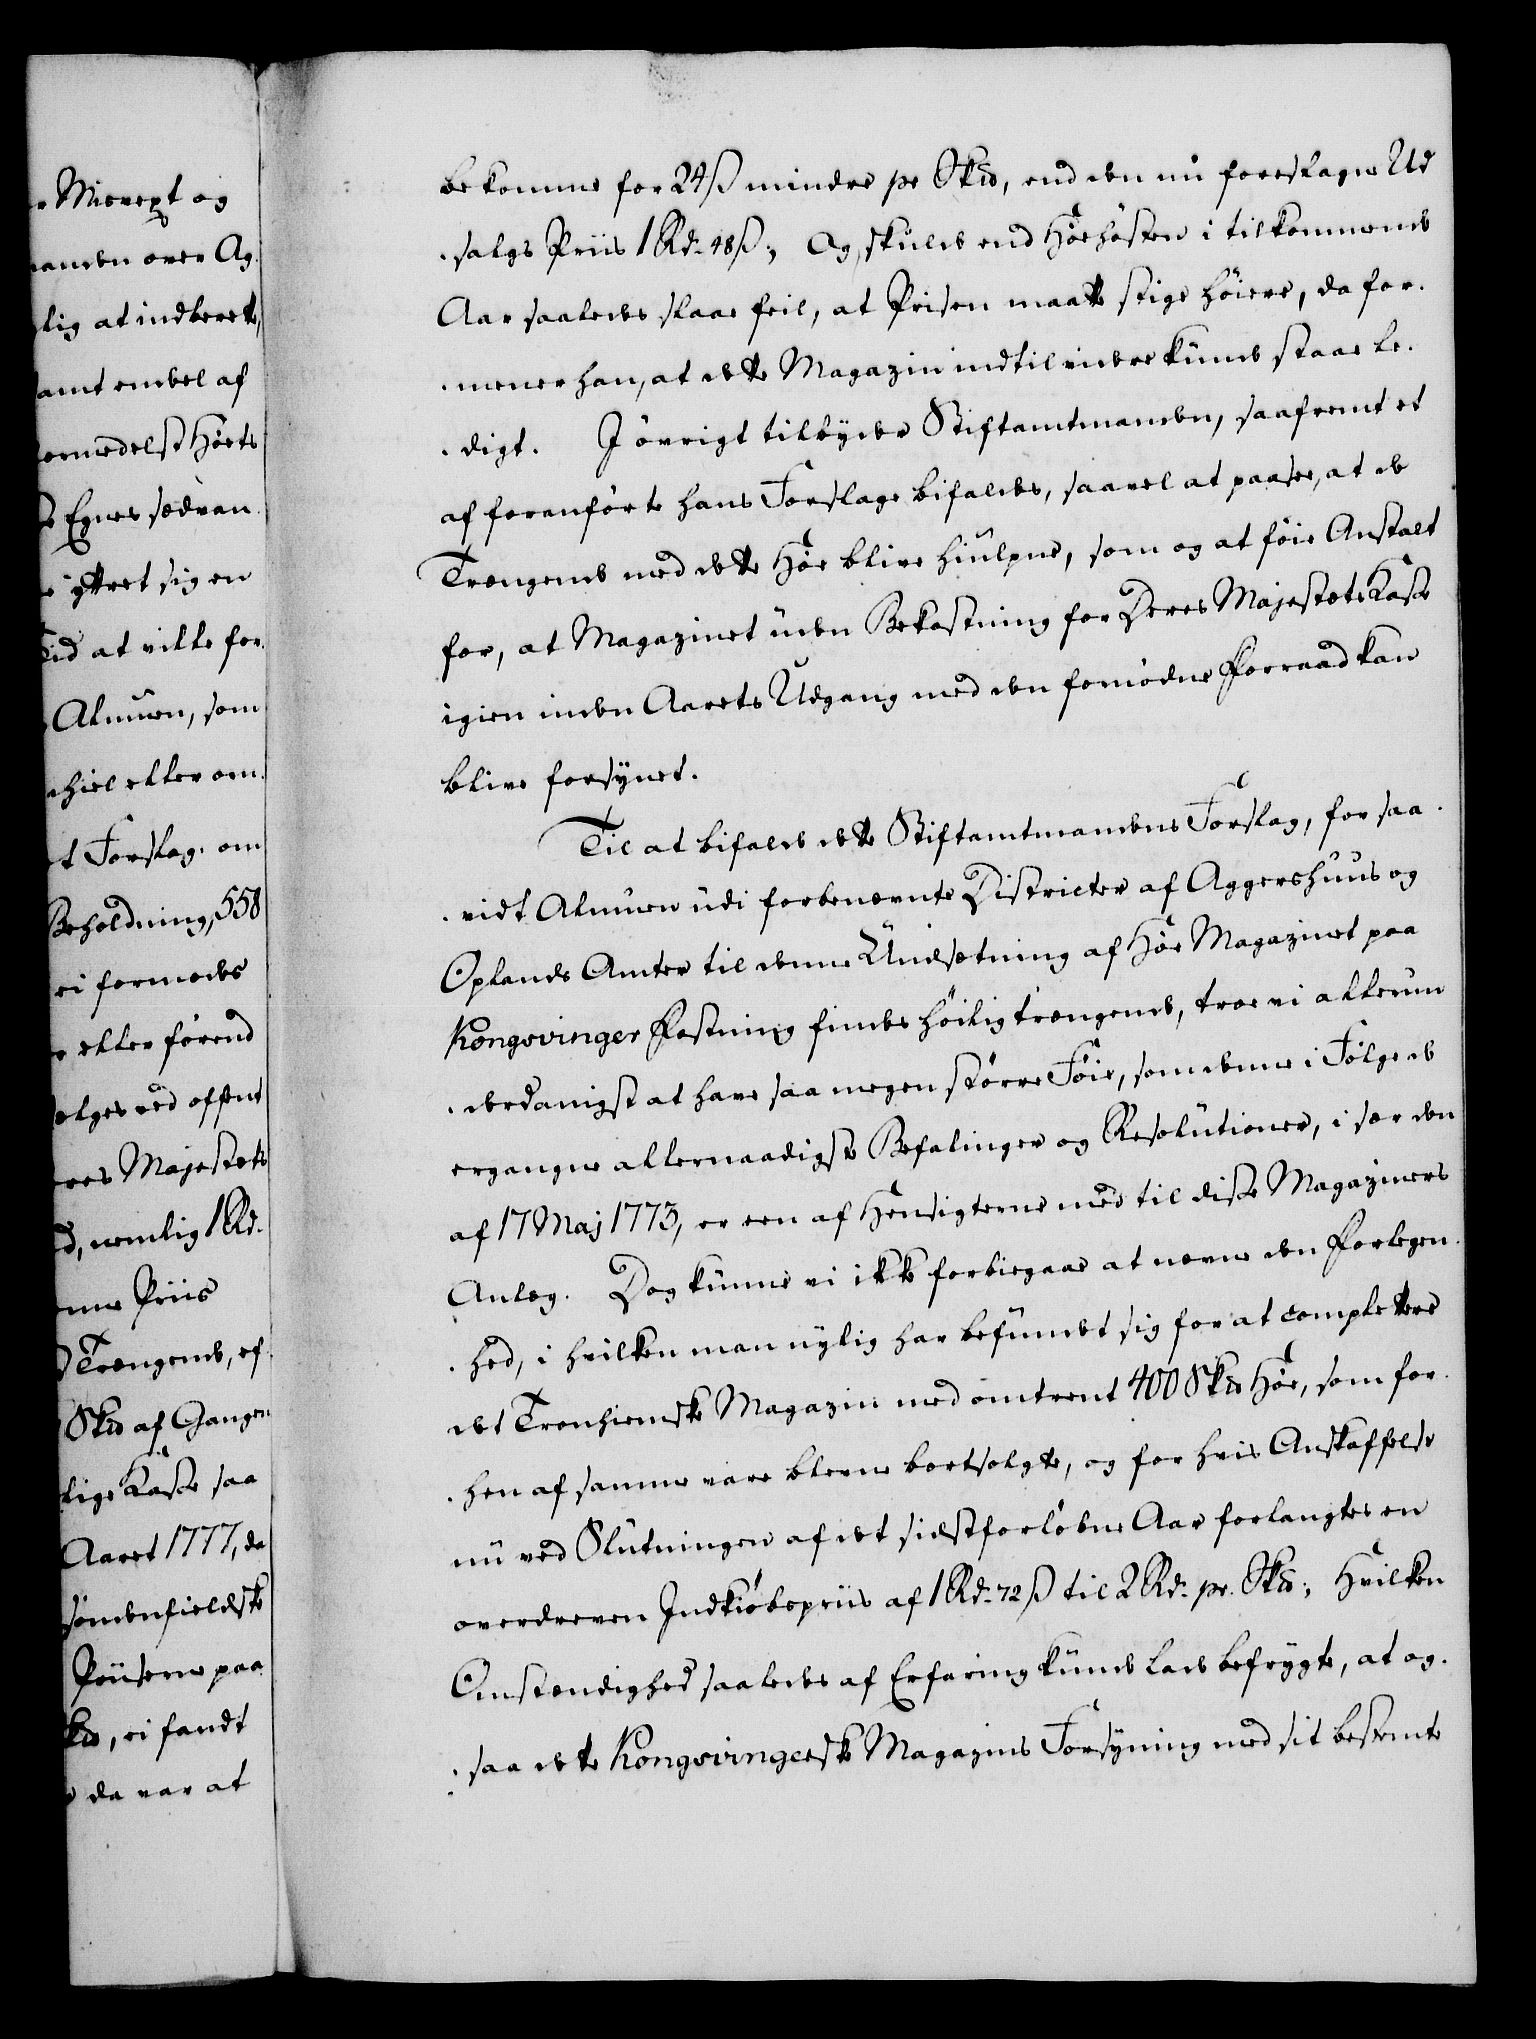 r Misvext og
manden over Ag-
lig at indberette,
samt endeel af
formedelst Høets
Egnes sædvan-
yttret sig en
Tid at ville for-
Almuen, som
hiel eller om-
t Forslag om
Beholdning, 558
ei formodes
eller førend
sælges ved offent
res Majestets
d, nemlig 1 Rd.
enne Priis
Trængende, ef-
Skd af Gangen
lige Kasse saa
Aaret 1777, da
søndenfieldske
Priiserne paa
Skd, ei fandt
da var at
bekomme for 24 ß mindre pr Skd, end den nu foreslagne Ud
-salgs Priis 1 Rd. 48 ß; Og, skulde end Høehøsten i tilkommende
Aar saaledes slaae feil, at Prisen maatte stige høiere, da for-
-mener han, at dette Magazin indtil videre kunde staae le-
-digt. I øvrigt tilbyder Stiftamtmanden, saafremt et
af foranførte hans Forslage bifaldes, saavel at paasee, at de
Trængende med dette Høe blive hiulpne, som og at føie Anstalt
for, at Magazinet uden Bekostning for Deres Majestets Kasse
igien inden Aarets Udgang med den fornødne Forraad kan
blive forsynet.
Til at bifalde dette Stiftamtmandens Forslag, for saa-
-vidt Almuen udi forbenævnte Districter af Aggershuus og
Oplands Amter til denne Undsætning af Høe Magazinet paa
Kongsvinger Festning findes høilig trængende, troe vi allerun
-derdanigst at have saa megen større Føie, som denne i Følge de
ergangne allernaadigste Befalinger og Resolutioner, i sær den
af 17 Maj 1773, er een af Hensigterne med til disse Magaziners
Anlæg. Dog kunne vi ikke forbiegaae at nævne den Forlegen-
-hed, i hvilken man nylig har befundet sig for at complettere
det Tronhiemske Magazin med omtrent 400 Skd Høe, som for-
-hen af samme vare blevne bortsolgte, og for hvis Anskaffelse
nu ved Slutningen af det sidstforløbne Aar forlangtes en
overdreven Indkiøbspriis af 1 Rd. 72 ß til 2 Rd. pr. Skd; Hvilken
Omstændighed saaledes af Erfaring kunde lade befrygte, at og-
-saa dette Kongsvingerske Magazins Forsyning med sit bestemte